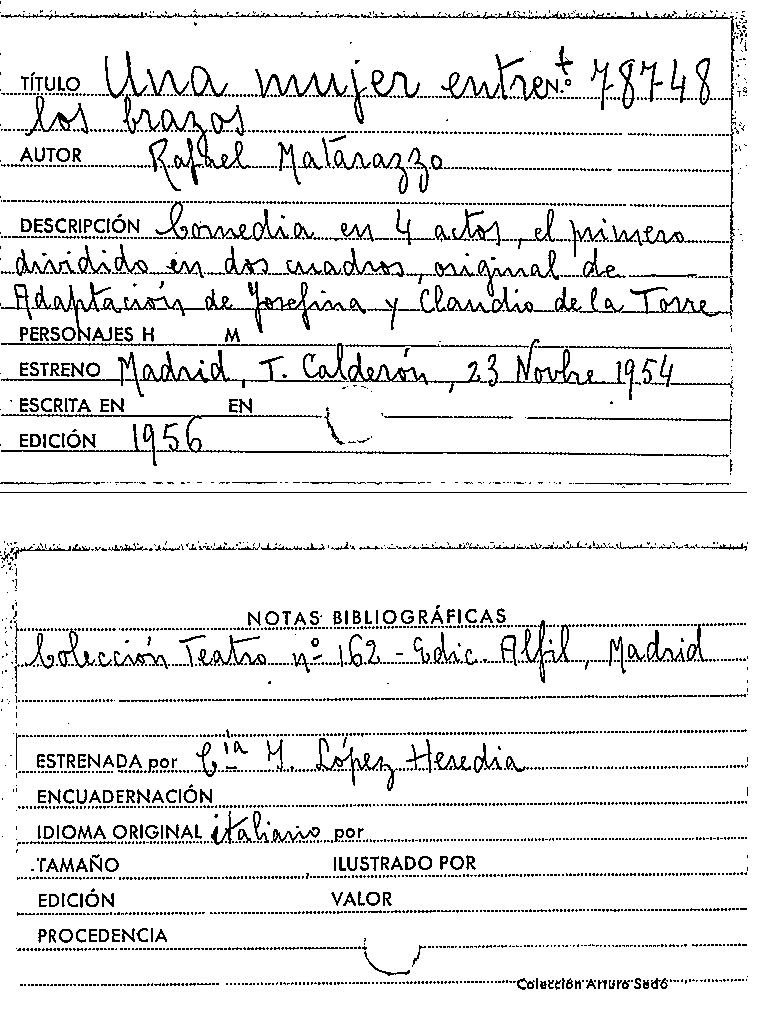 TÍTULO Una mujer entre N.º 78748
los brazos
AUTOR Rafael Matarazzo
DESCRIPCIÓN Comedia en 4 actos, el primero
dividido en dos cuadros, original de
Adaptación de Josefina y Claudio de la Torre
PERSONAJES H M
ESTRENO Madrid, T. Calderón, 23 Novbre 1954
ESCRITA EN EN
EDICIÓN 1956
NOTAS BIBLIOGRÁFICAS
Colección Teatro nº 162 - Edic. Alfil, Madrid
ESTRENADA por Cía M. López Heredia
ENCUADERNACIÓN
IDIOMA ORIGINAL italiano por
TAMAÑO ILUSTRADO POR
EDICIÓN VALOR
PROCEDENCIA
Colección Arturo Sedó